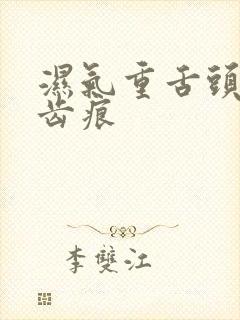 濕氣重舌頭
齒痕
李雙江